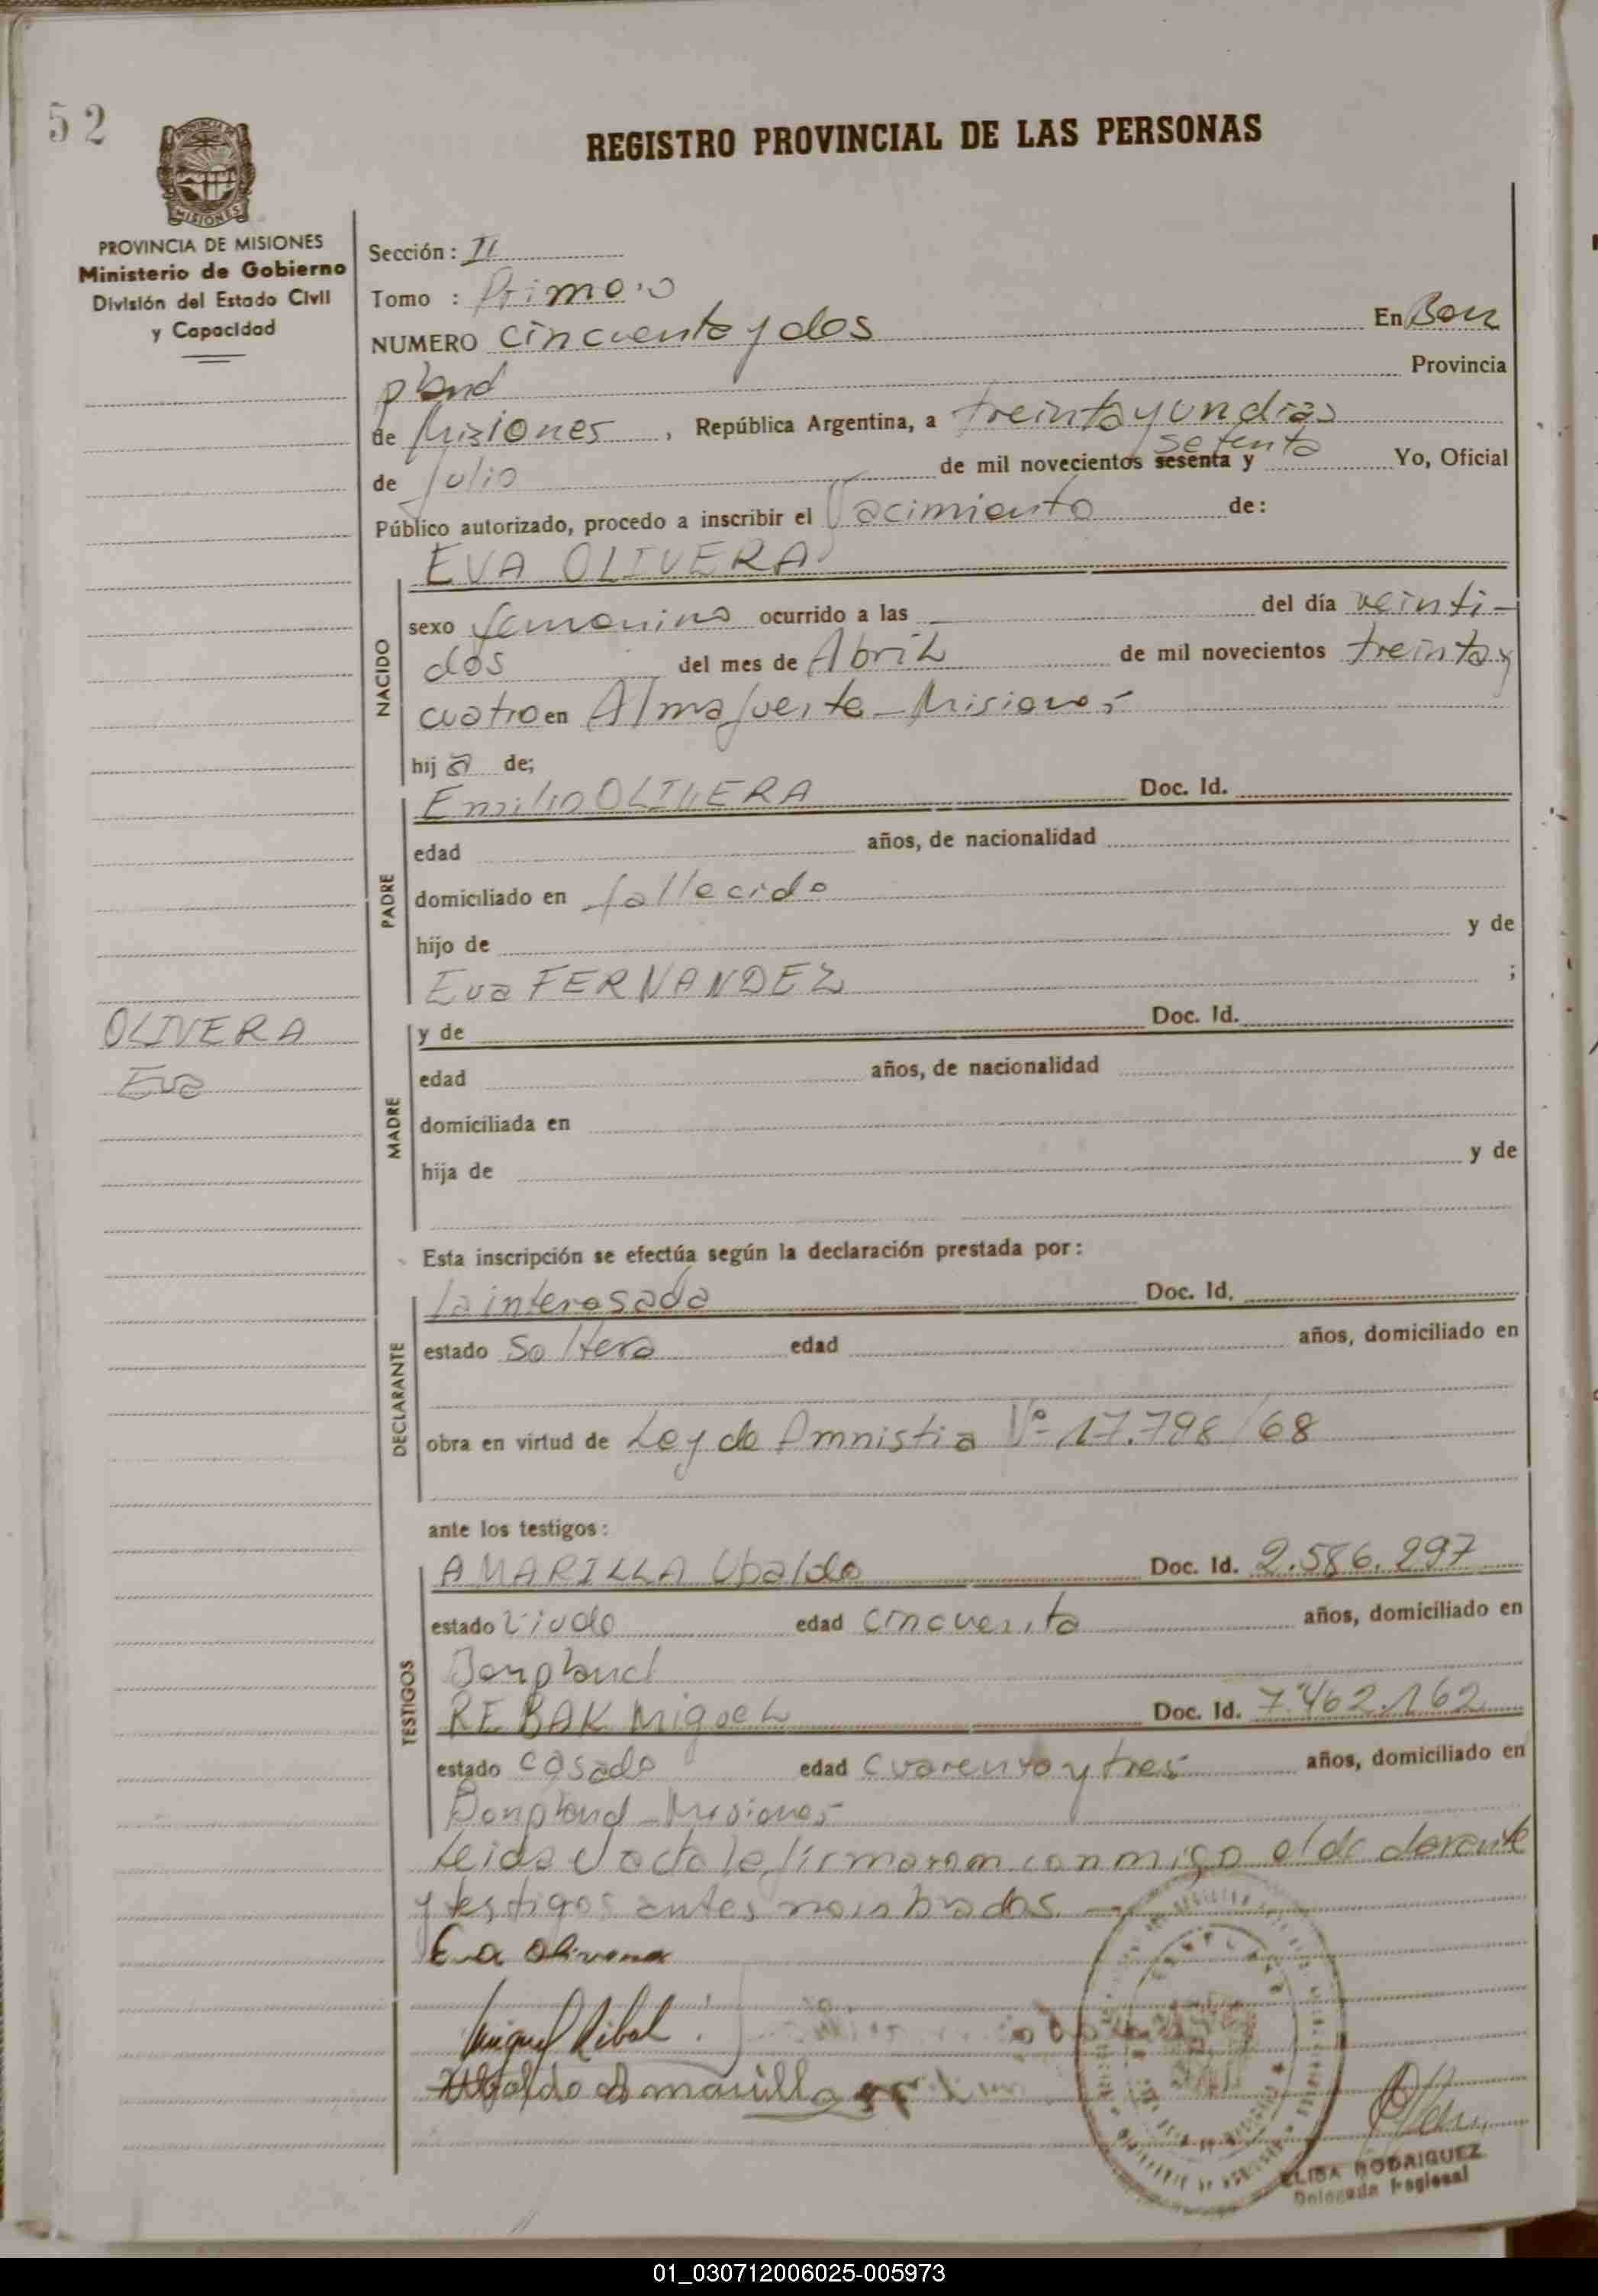 52
REGISTRO PROVINCIAL DE LAS PERSONAS
PROVINCIA DE
MISIONES
PROVINCIA DE MISIONES
Ministerio de Gobierno
División del Estado Civil
y Capacidad
Sección : II
Tomo : Primero
NUMERO Cincuenta y dos En Bon
pland Provincia
de Misiones , República Argentina, a treinta y un dias
setenta
de Julio de mil novecientos sesenta y Yo, Oficial
Público autorizado, procedo a inscribir el Nacimiento de:
EVA OLIVERA
NACIDO
sexo femenino ocurrido a las del día veinti-
dos del mes de Abril de mil novecientos treinta y
cuatro en Almafuerte - Misiones -
hij a de;
PADRE
Emilio OLIVERA Doc. Id.
edad años, de nacionalidad
domiciliado en fallecido
hijo de y de
Eva FERNANDEZ ;
OLIVERA
Eva
MADRE
y de Doc. Id.
edad años, de nacionalidad
domiciliada en
hija de y de
Esta inscripción se efectúa según la declaración prestada por:
DECLARANTE
la interesada Doc. Id.
estado Soltera edad años, domiciliado en
obra en virtud de Ley de Amnistia Nº 17.798/68
ante los testigos:
TESTIGOS
AMARILLA Ubaldo Doc. Id. 2.586.297
estado Viudo edad cincuenta años, domiciliado en
Bonpland
REBAK Miguel Doc. Id. 7.462.162
estado casado edad cuarenta y tres años, domiciliado en
Bonpland - Misiones -
Leida el acta la firmaron conmigo el declarante
y testigos antes nombrados.
Eva Olivera
Miguel Ribak
Ubaldo Amarilla
ELISA RODRIGUEZ
Delegada Regional
01_030712006025-005973